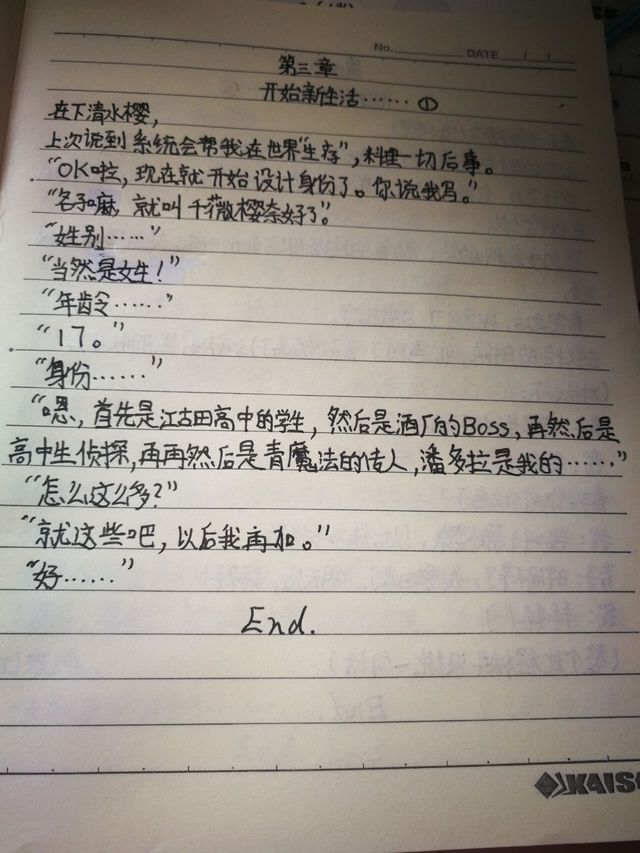 No.
DATE / /
第三章
开始新生活…… ①
在下清水樱,
上次说到系统会帮我在世界"生存",料理一切后事。
"OK啦,现在就开始设计身份了。你说我写。"
"名字嘛,就叫千薇樱奈好了。"
"姓别……"
"当然是女生!"
"年龄……"
"17。"
"身份……"
"嗯,首先是江古田高中的学生,然后是酒厂的Boss,再然后是
高中生侦探,再再然后是青魔法的传人,潘多拉是我的……"
"怎么这么多?"
"就这些吧,以后我再加。"
"好……"
End.
KAIS